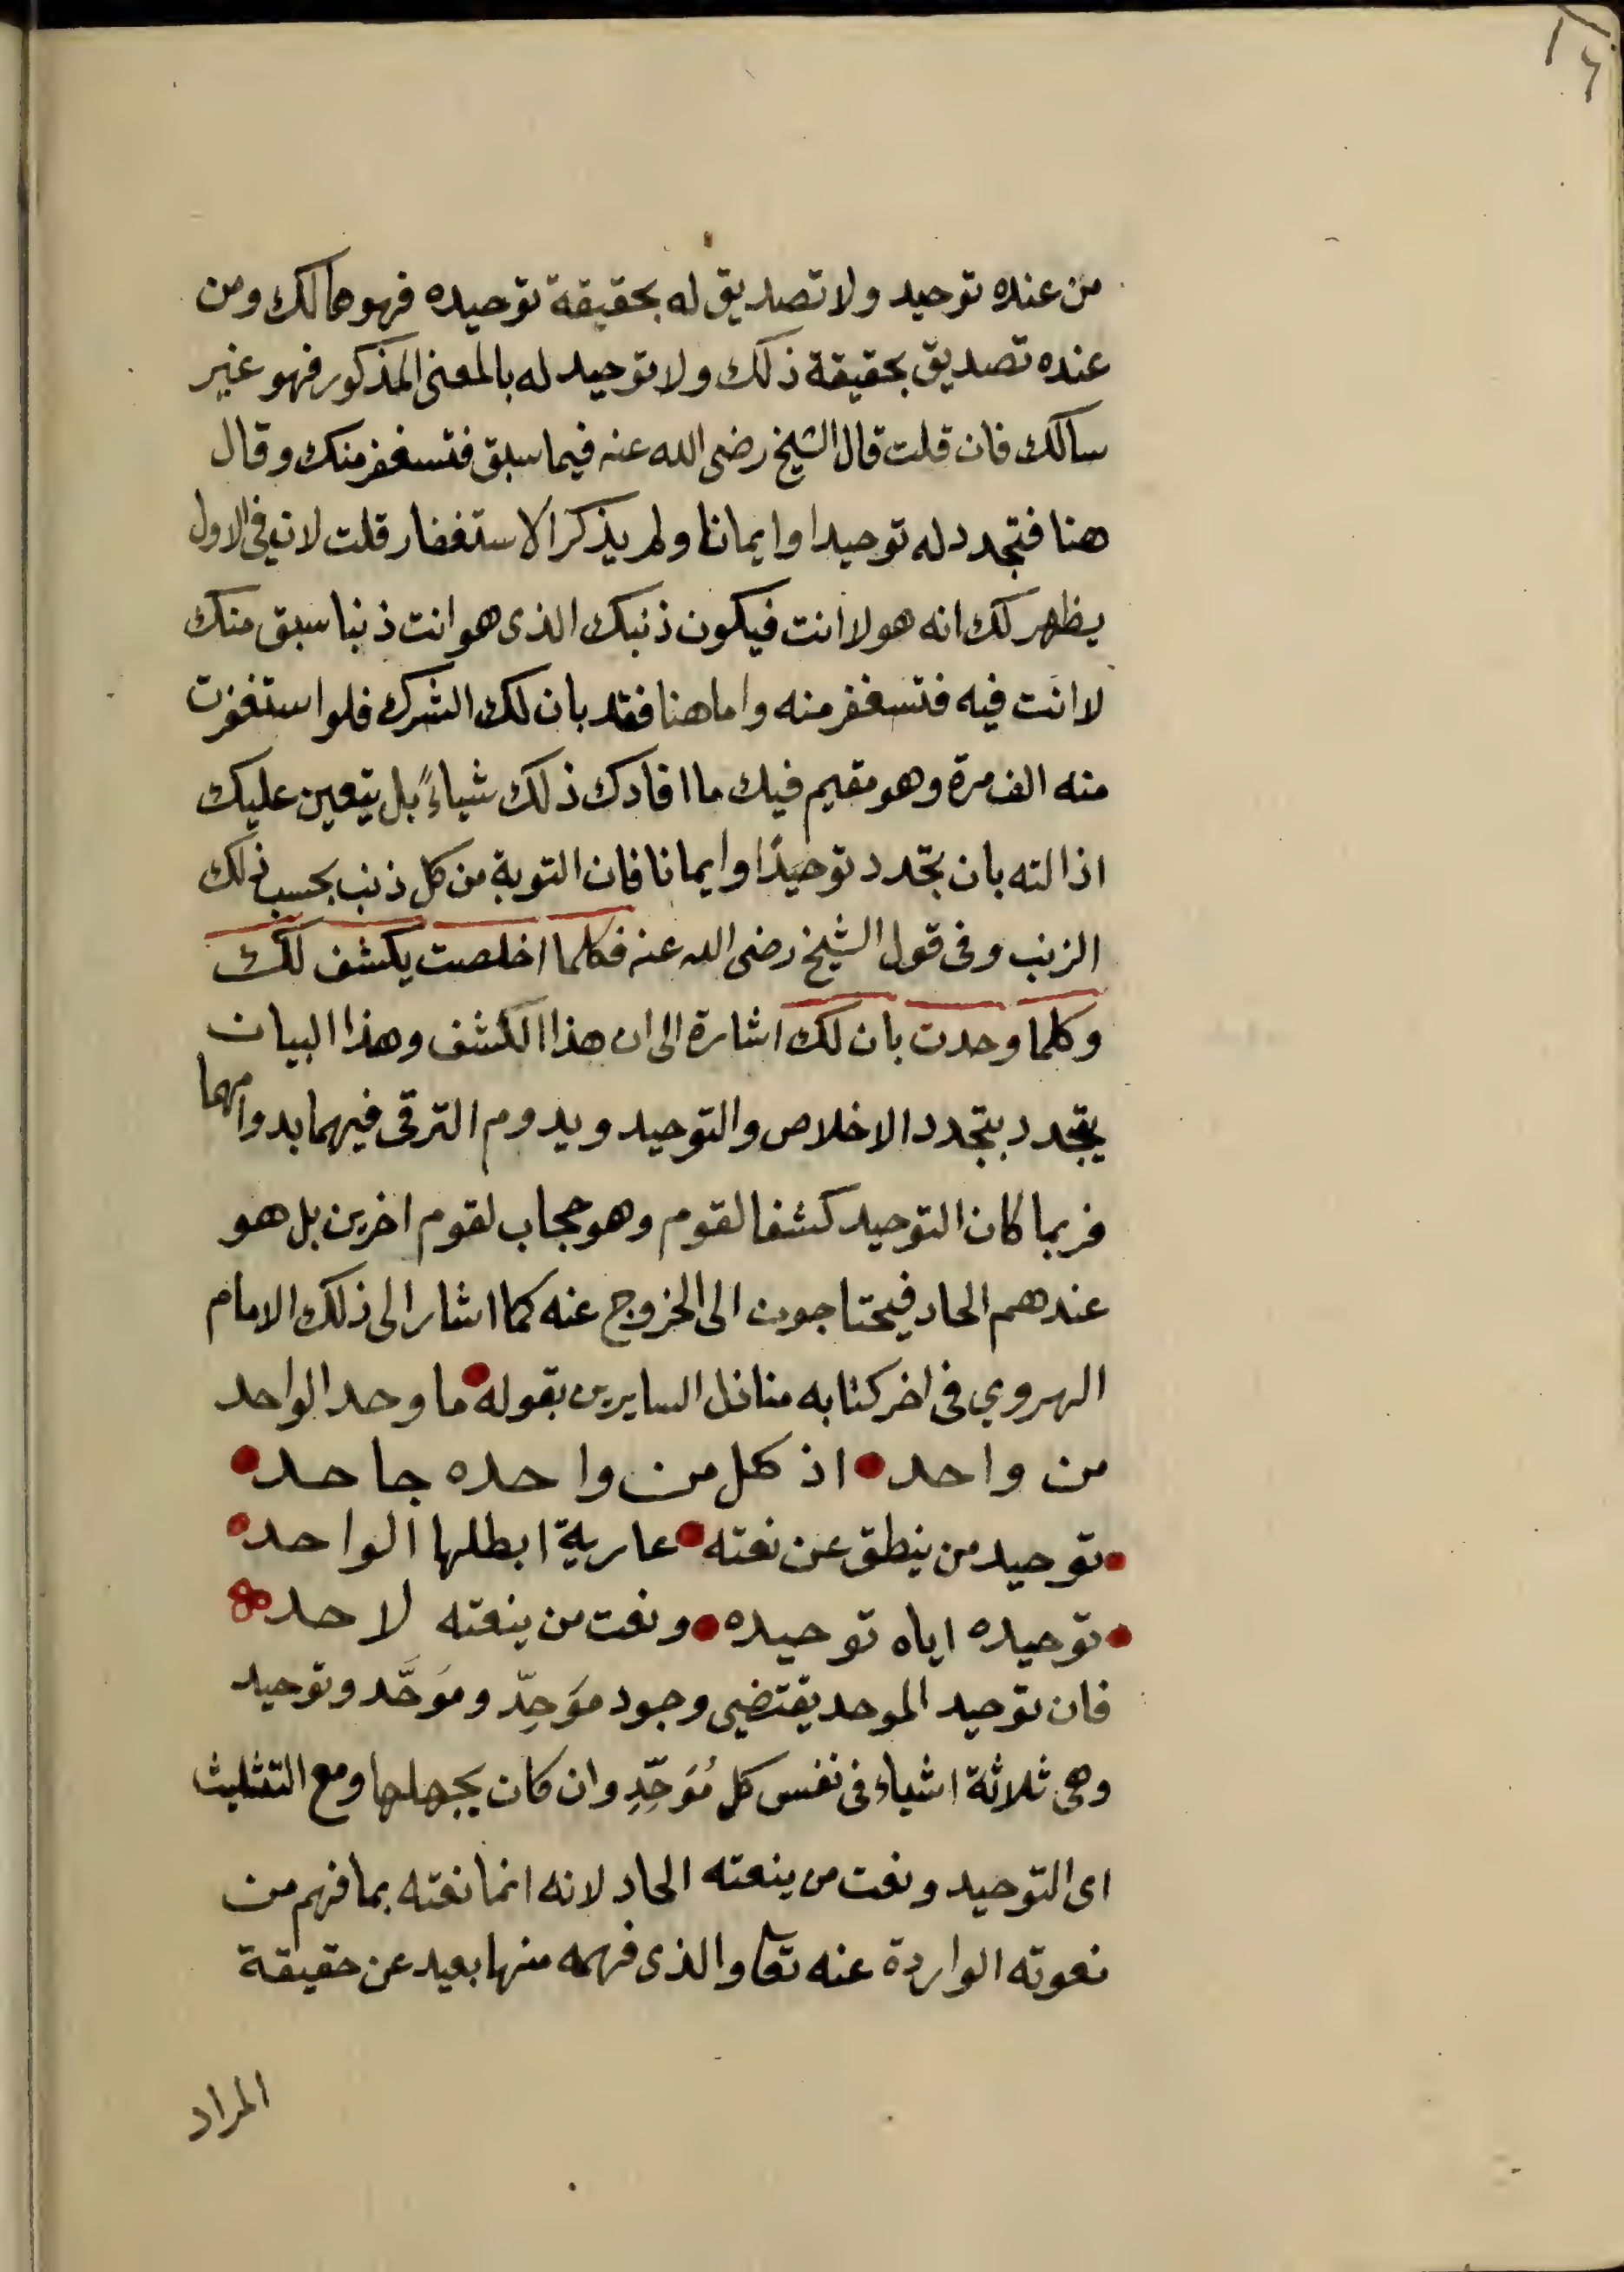 ١٦
من عنده توحيد ولا تصديق له بحقيقة توحيده فهو هالك ومن
عنده تصديق بحقيقة ذلك ولا توحيد له بالمعنى المذكور فهو غير
سالك فان قلت قال الشيخ رضى الله عنه فيما سبق فتستغفر منك وقال
هنا فتجدد له توحيدا وايمانا ولم يذكر الاستغفار قلت لانه فى الاول
يظهر لك انه هو لا انت فيكون ذنبك الذى هو انت ذنبا سبق منك
لا انت فيه فتستغفر منه واما هنا فقد بان لك الشرك فلو استغفرت
منه الف مرة وهو مقيم فيك ما افادك ذلك شياءً بل يتعين عليك
اذالته بان تجدد توحيدًا وايمانا فان التوبة من كل ذنب بحسب ذلك
الزنب وفى قول الشيخ رضى الله عنه فكلما اخلصت يكشف لك
وكلما وحدت بان لك اشارة الى ان هذا الكشف وهذا البيان
يتجدد بتجدد الاخلاص والتوحيد ويدوم الترقى فيهما بدوامهما
فربما كان التوحيد كشفا لقوم وهو حجاب لقوم اخرين بل هو
عندهم الحاد فيحتاجون الى الخروج عنه كما اشار الى ذلك الامام
الهروي فى اخر كتابه منازل السايرين بقوله ما وحد الواحد
من واحد اذ كل من واحده جاحد
توحيد من ينطق عن نعته عارية ابطلها الواحد
توحيده اياه توحيده ونعت من ينعته لاحد
فان توحيد الموحد يقتضي وجود موَحِدّ وموَحَّد وتوحيد
وهى ثلاثة اشياء فى نفس كل مُوَحِّدِ وان كان يجهلها ومع التثليث
اى التوحيد ونعت من ينعته الحاد لانه انما نعته بما فهم من
نعوته الواردة عنه تعا والذى فهمه منها بعيد عن حقيقة
المراد